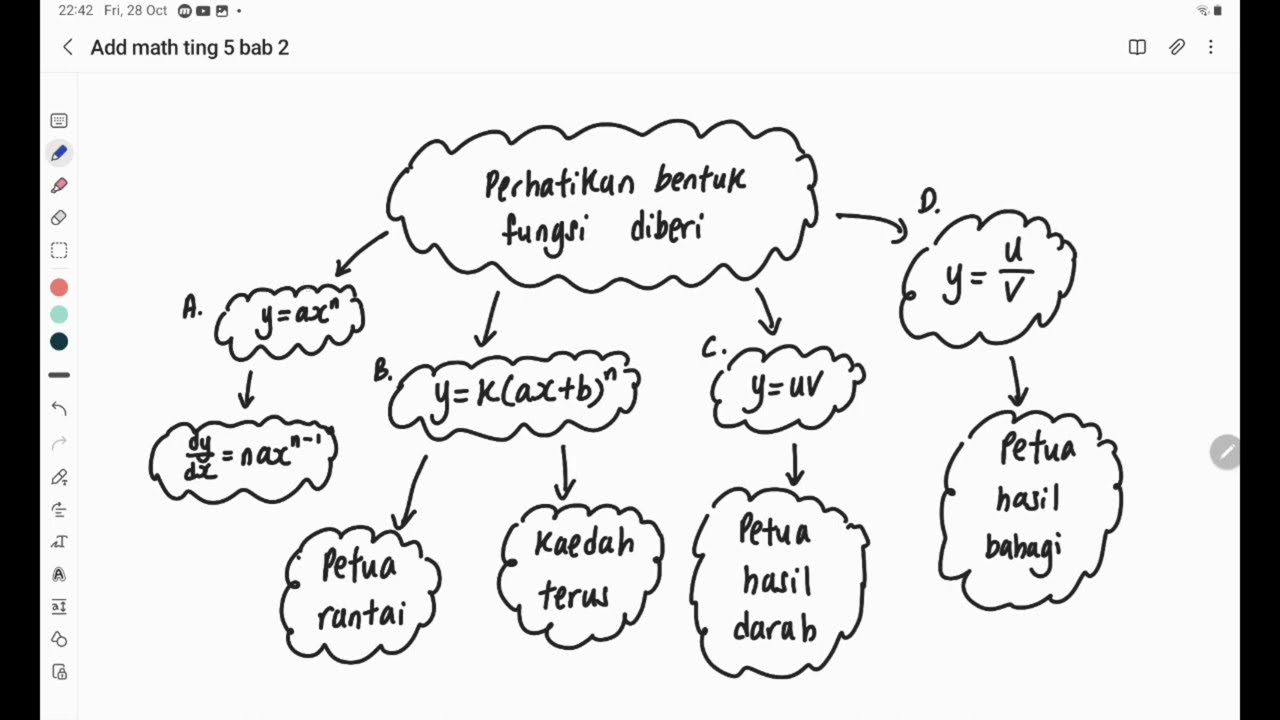 22:42 Fri, 28 Oct
Add math ting 5 bab 2
Perhatikan bentuk
fungsi diberi
A.
y = axⁿ
dy/dx = naxⁿ⁻¹
B.
y = k(ax+b)ⁿ
Petua
rantai
Kaedah
terus
C.
y = uv
Petua
hasil
darab
D.
y = u/v
Petua
hasil
bahagi